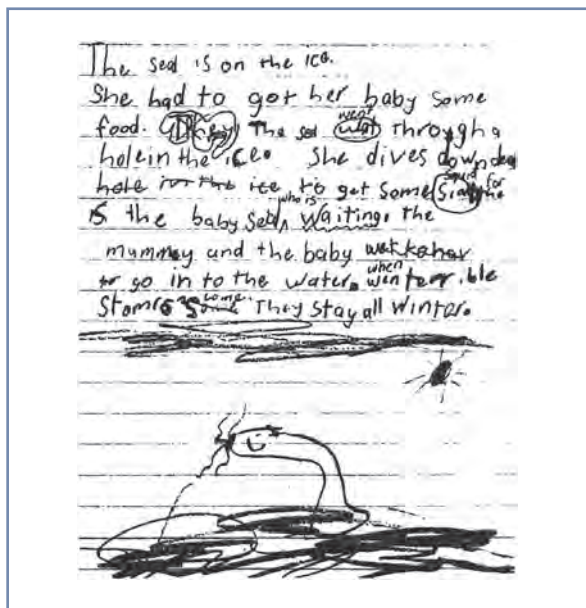 The seal is on the ice.
She had to get her baby some
food. The seal went through a
hole in the ice. She dives down deep
hole in the ice to get some squid for
is the baby seal who is waiting. the
mummy and the baby
go in to the water. when terrible
Stomrs come They stay all winter.